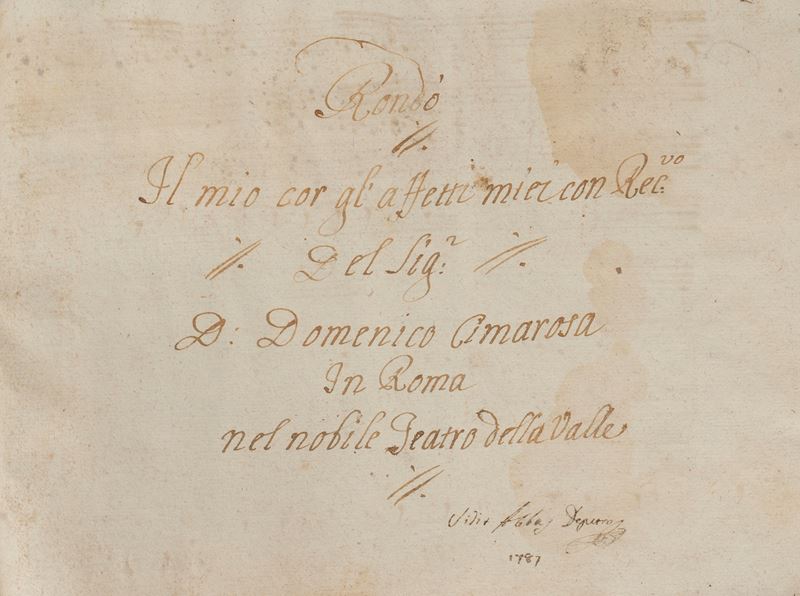 Rondò
Il mio cor gl' affetti miei con Rec:vo
Del Sig:r
D: Domenico Cimarosa
In Roma
nel nobile Teatro della Valle
1787